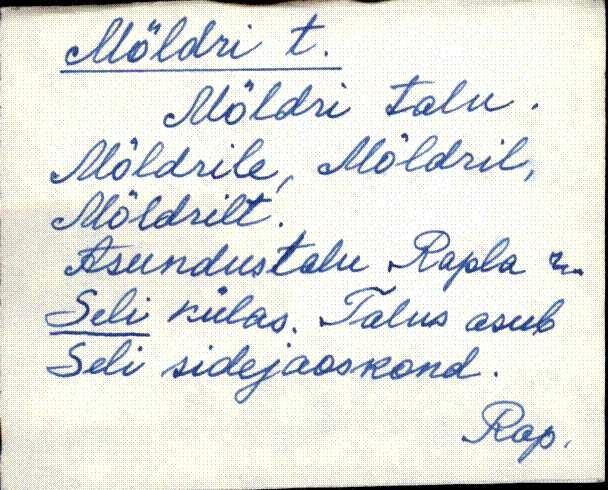 Möldri t.
Möldri talu.
Möldrile, Möldril,
Möldrilt.
Asundustalu Rapla
Seli külas. Talus asub
Seli sidejaoskond.
Rap.